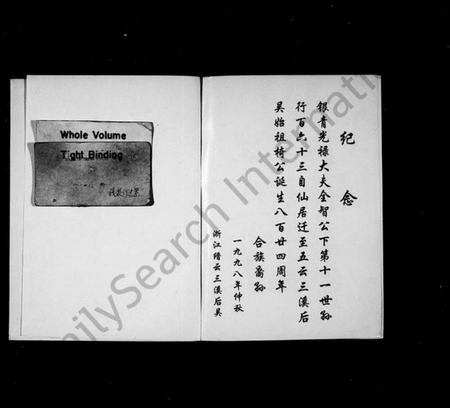 Whole Volume
Tight Binding
纪念
银青光禄大夫全智公下第十一世孙
行百六十三自仙居迁至五云三溪后
吴始祖椅公诞生八百廿四周年
合族裔孙
一九九八年仲秋
浙江缙云三溪后吴
FamilySearch International